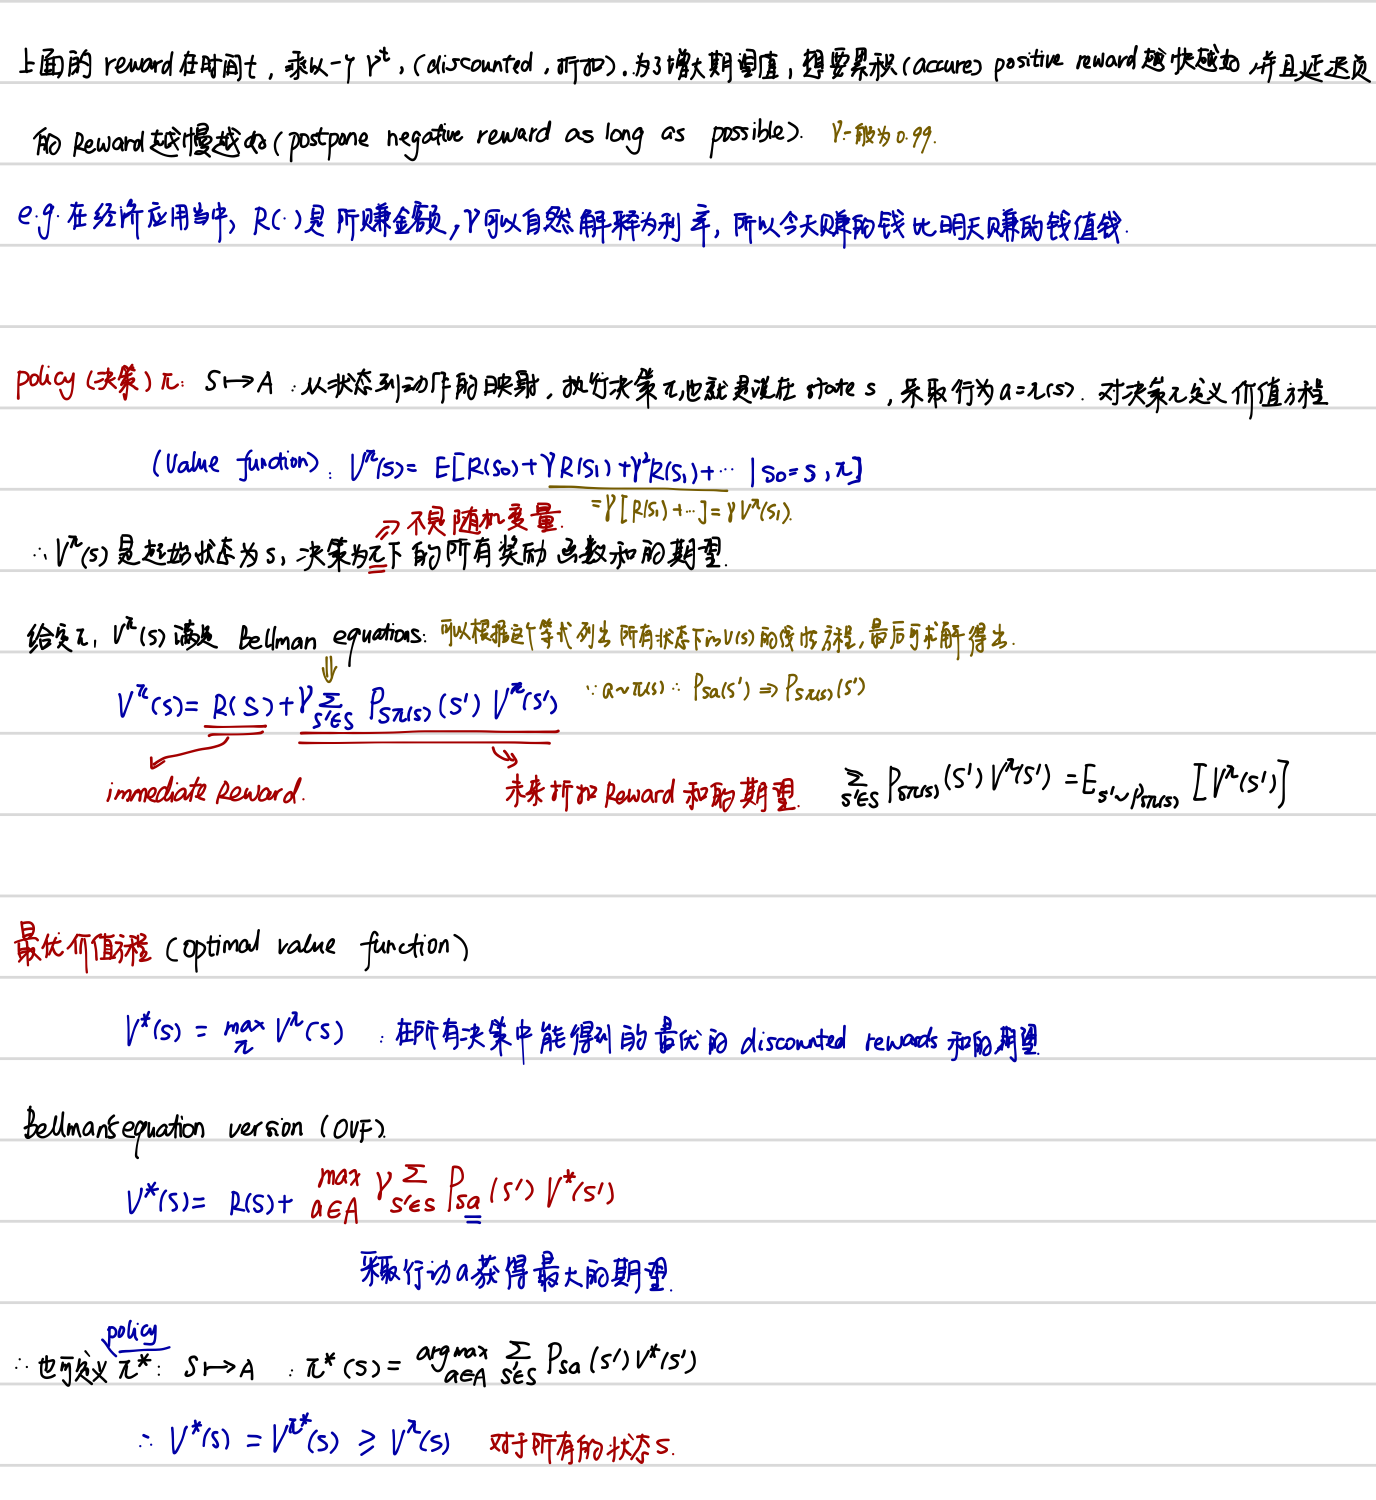 上面的 reward 在时间t，乘以一个 γ^t，(discounted，折扣)。为了增大期望值，想要累积(accure) positive reward 越快越好，并且延迟负
的 Reward 越慢越好 (postpone negative reward as long as possible). γ一般为 0.99.
e.g. 在经济应用当中，R(·)是所赚金额，γ可以自然解释为利率，所以今天赚的钱比明天赚的钱值钱.
policy (决策) π: S↦A : 从状态到动作的映射，执行决策π，也就是说在 state s，采取行为 a=π(s). 对决策π定义价值方程
(Value function): V^π(s) = E[R(s₀)+γR(s₁)+γ²R(s₁)+… | s₀=s, π]
=γ[R(s₁)+…]=γV^π(s₁).
⇒ 不是随机变量.
∴ V^π(s) 是起始状态为 s，决策为π下的所有奖励函数和的期望.
给定π，V^π(s) 满足 Bellman equations: 可以根据这个等式列出所有状态下的V(s)的线性方程，最后可求解得出.
⇓
V^π(s) = R(s)+γ∑_{s'∈S} P_{sπ(s)}(s') V^π(s') ∵ a~π(s) ∴ P_{sa}(s') ⇒ P_{sπ(s)}(s')
immediate Reward. 未来折扣 Reward 和的期望. ∑_{s'∈S} P_{sπ(s)}(s') V^π(s') = E_{s'~P_{sπ(s)}} [V^π(s')]
最优价值方程 (optimal value function)
V*(s) = max_π V^π(s) : 在所有决策中能得到的最优的 discounted rewards 和的期望
Bellman's equation version (OVF).
V*(s) = R(s)+ max_{a∈A} γ∑_{s'∈S} P_{sa}(s') V*(s')
采取行动a获得最大的期望.
policy
∴ 也可定义 π*: S↦A : π*(s) = argmax_{a∈A} ∑_{s'∈S} P_{sa}(s') V*(s')
∴ V*(s) = V^{π*}(s) ≥ V^π(s) 对于所有的状态 s.